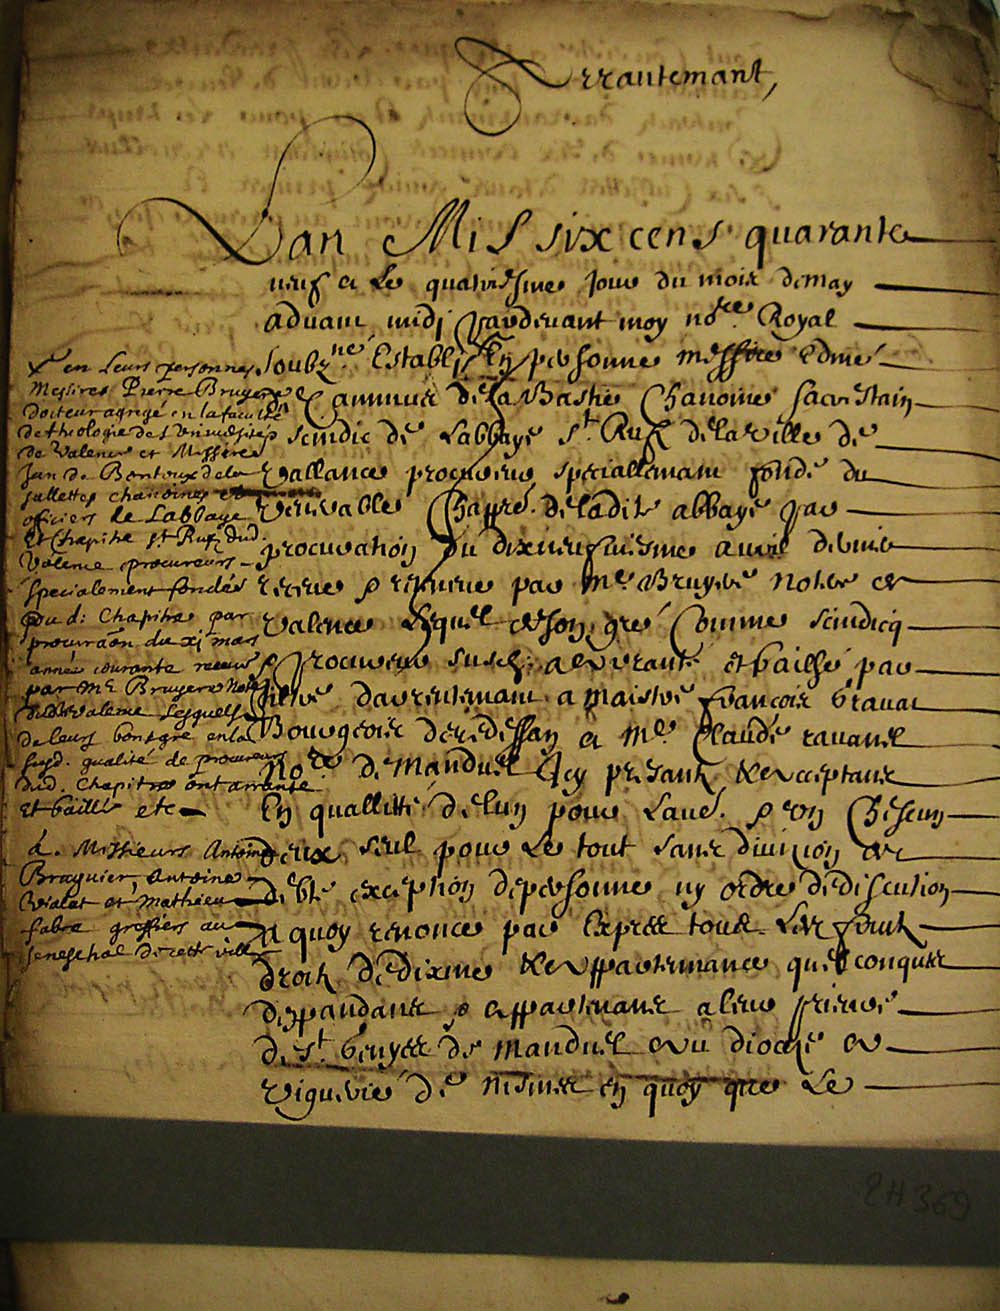 Arrantemant,
Lan Mil six cens quarante
neuf et le quatriesme jour du mois de may
advant midj pardevant moy no.re Royal
soubz.né Establj En personne messire Edmé
de la Bastie Chanoine sacrestain
scindic de Labbaye s.t Ruf de la ville de
vallance procureur speciallemant fondé du
venerable Chappre. de ladite abbaye par
procuration du dixneufviesme avril dernier
receue par M.e Bruyere not.re de
valence Lequel de son gré Comme scindicq
procureur susd. a et baillé par
tiltre darrentemant a maistre françois Gravat
Bourgeois de redessan et M.e Claude ravanel
No.re de Manduel Icy presantz & acceptans
En quallitté de lun pour Lau.e & un Chescun
deux seul pour Le tout sans division
exception de personne ny ordre de discution
A quoy renonce par Exprez tous Les fruitz
droitz de dixme & appartenances quelconques
despandans & appartenans a leur prieuré
de s.t Genyes de Manduel au diocese et
viguerié de nismes en quoy que Le
x en Leurs personnes
Messires Pierre Bruyere
docteur agregé en la faculté
de theologie de Luniversité
de Valence et Messire
Jan de Bontoux de la
sallettes chanoines
officiers de Labbaye
et Chapitre s.t Ruf dud.
Valence procureurs
specialement fondés
du d: Chapitre par
procuraon du xj mars
année courante receue
par M.e Bruyere Not.re
dud Valence Lesquels
de leurs bon gré en la
susd. qualité de procureurs
dud. Chapitre ont arranté
et baillé etc
à Messieurs Antoine
Braguier, Antoine
Violet et Mathieu
fabre greffiers au
seneschal de cette ville
2H369